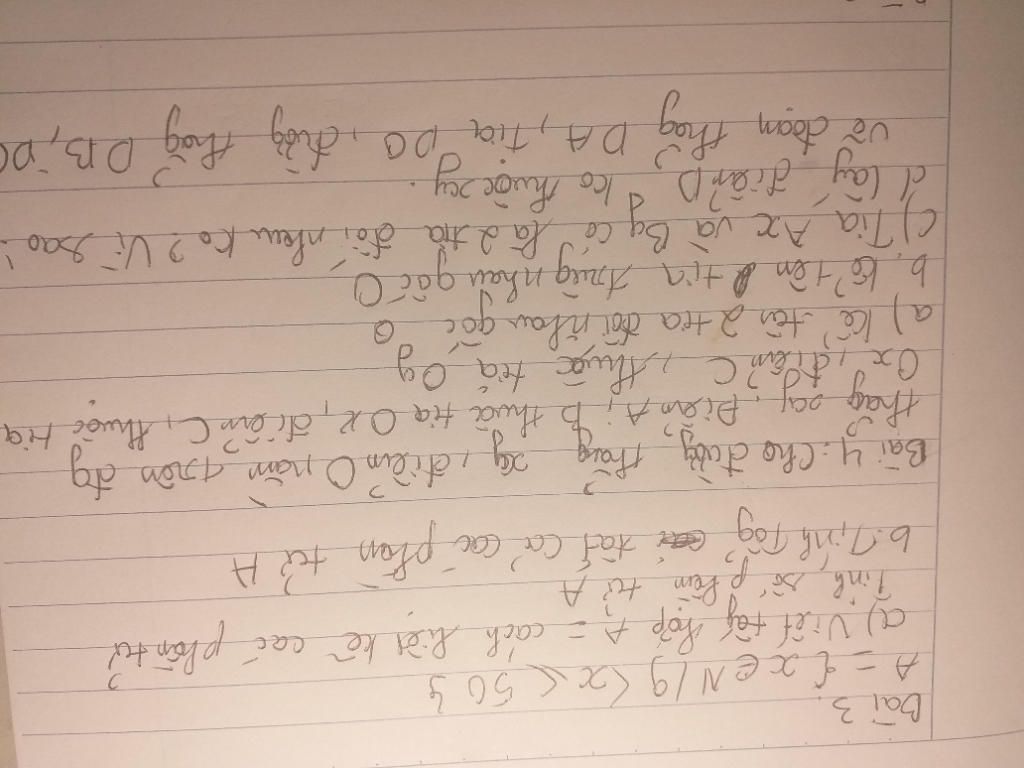 Bài 3.
A = { x ∈ N / 9 < x < 50 }
a) Viết tập hợp A = cách liệt kê các phần tử
Tính số phần tử A
b. Tính Tổg tất cả các phần tử A
Bài 4: Cho đườg thẳng xy, điểm O nằm trên đg
thẳg xy. Điểm A, B thuộ tia Ox, điểm C, thuộc tia
Ox, điểm C, thuộc tia Oy
a) kể tên 2 tia đối nhau gốc O
b. kể tên tia trùg nhau gốc O
c) Tia Ax và By có là 2 tia đối nhau ko? Vì sao?
d Lấy điểm D ko thuộc xy.
Vẽ đoạn thẳg DA, Tia DO, đườg thẳg DB, DC